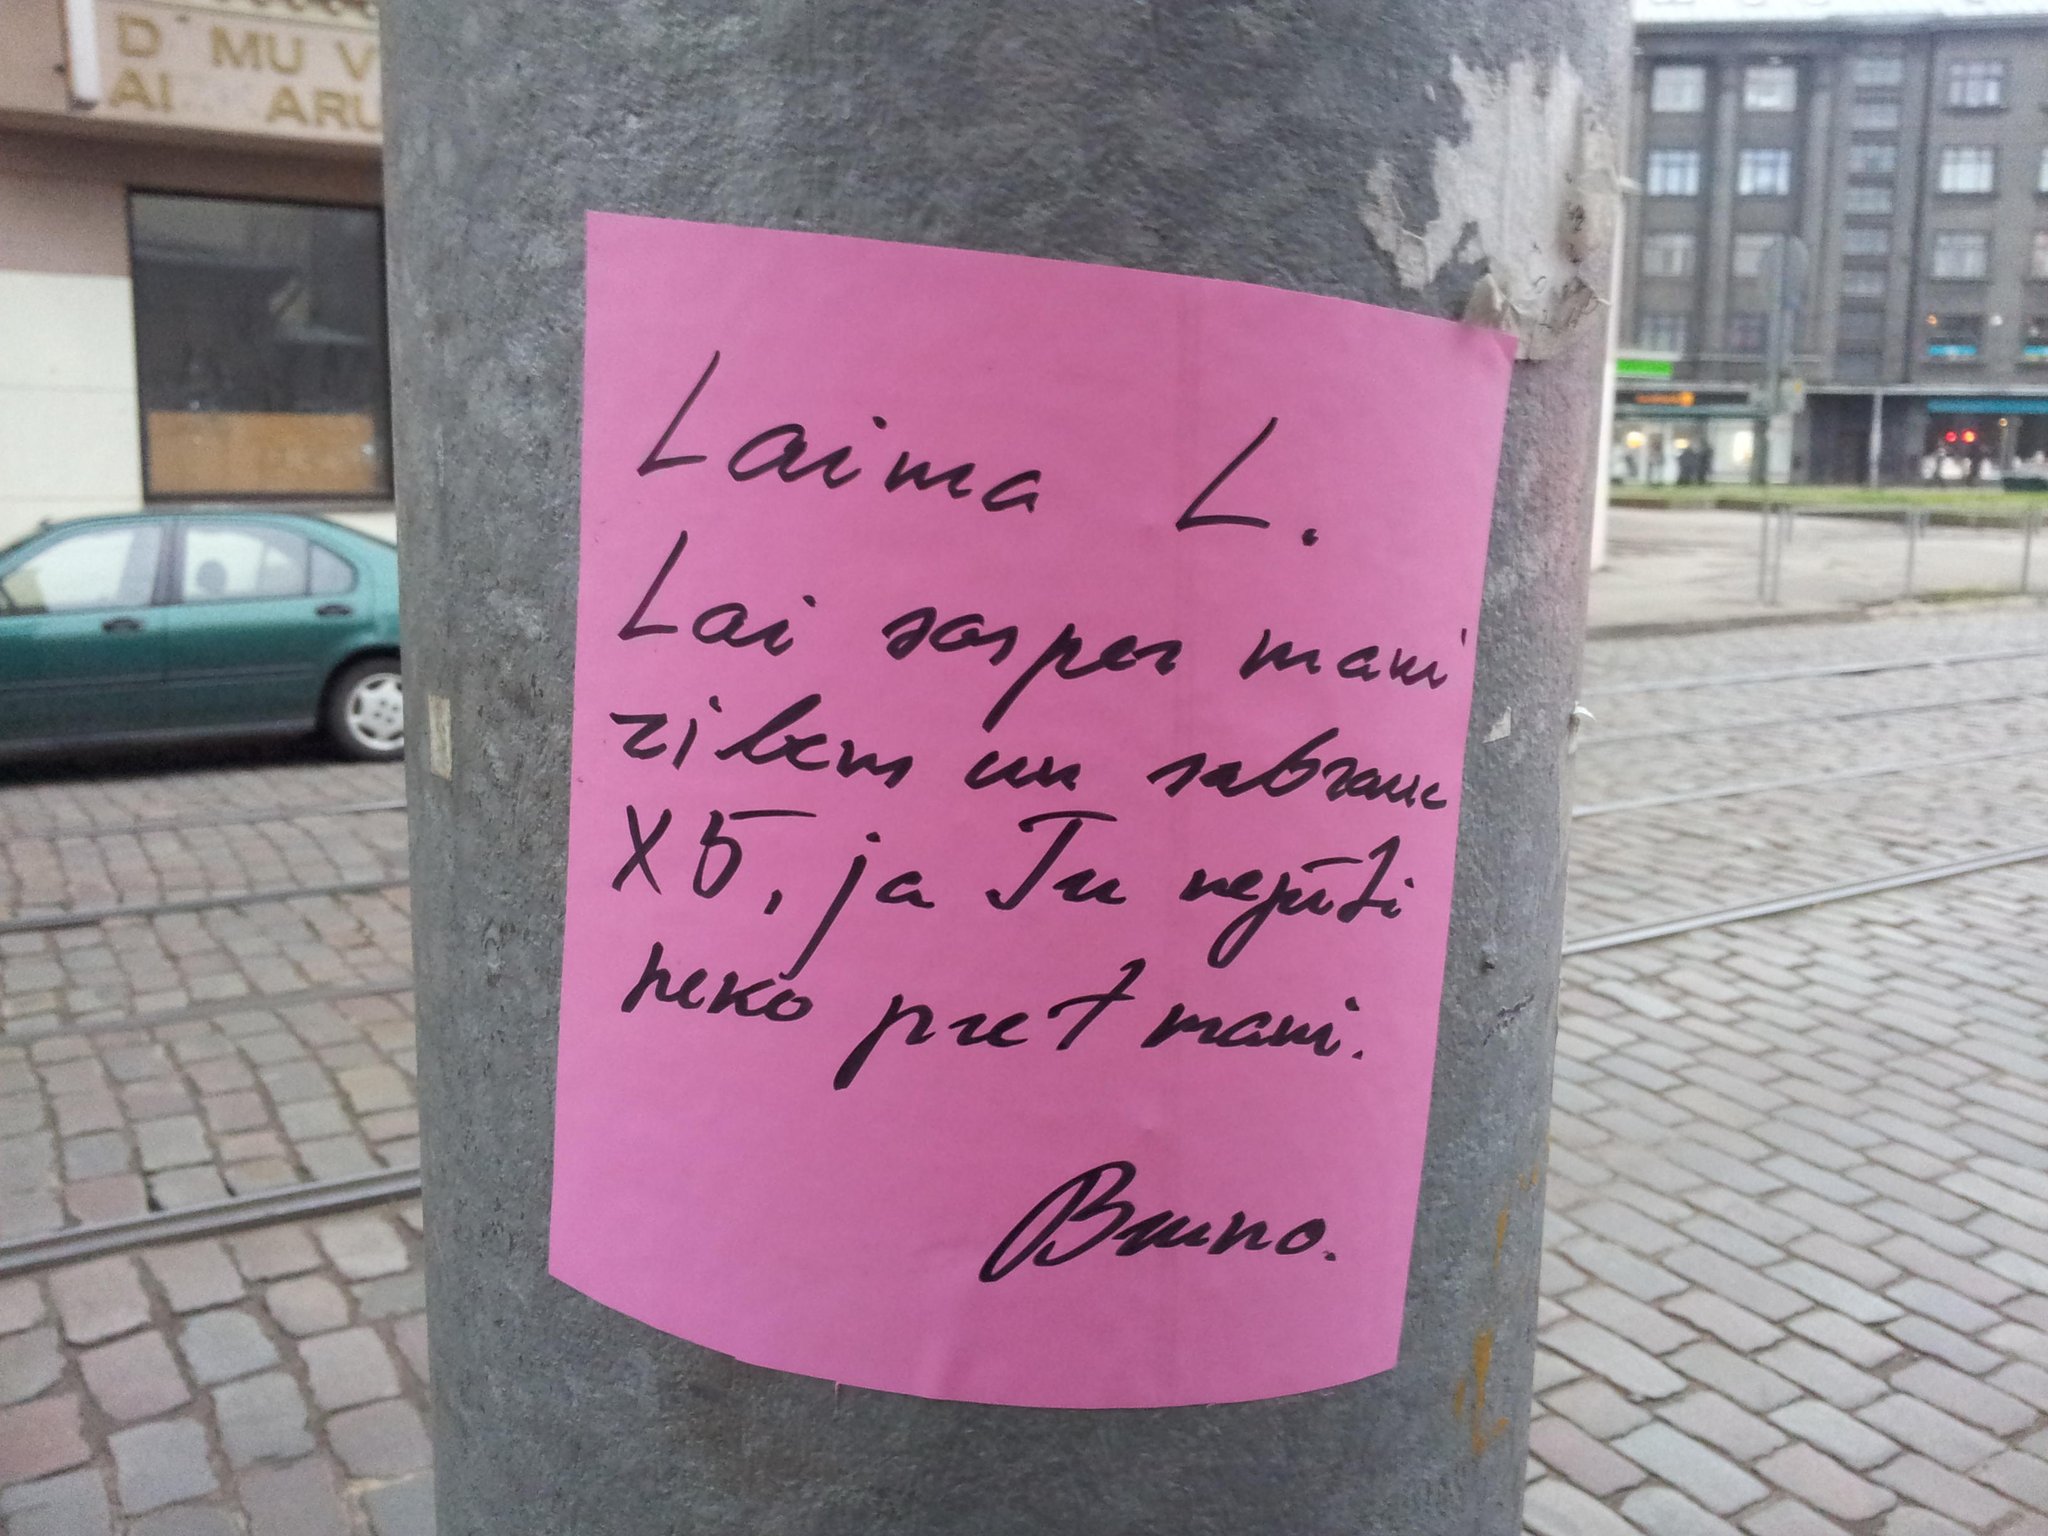 D MU V
AI ARU
Laima L.
Lai sasper mani
zibens un sabrauc
X5, ja Tu nejūti
neko pret mani.
Bruno.